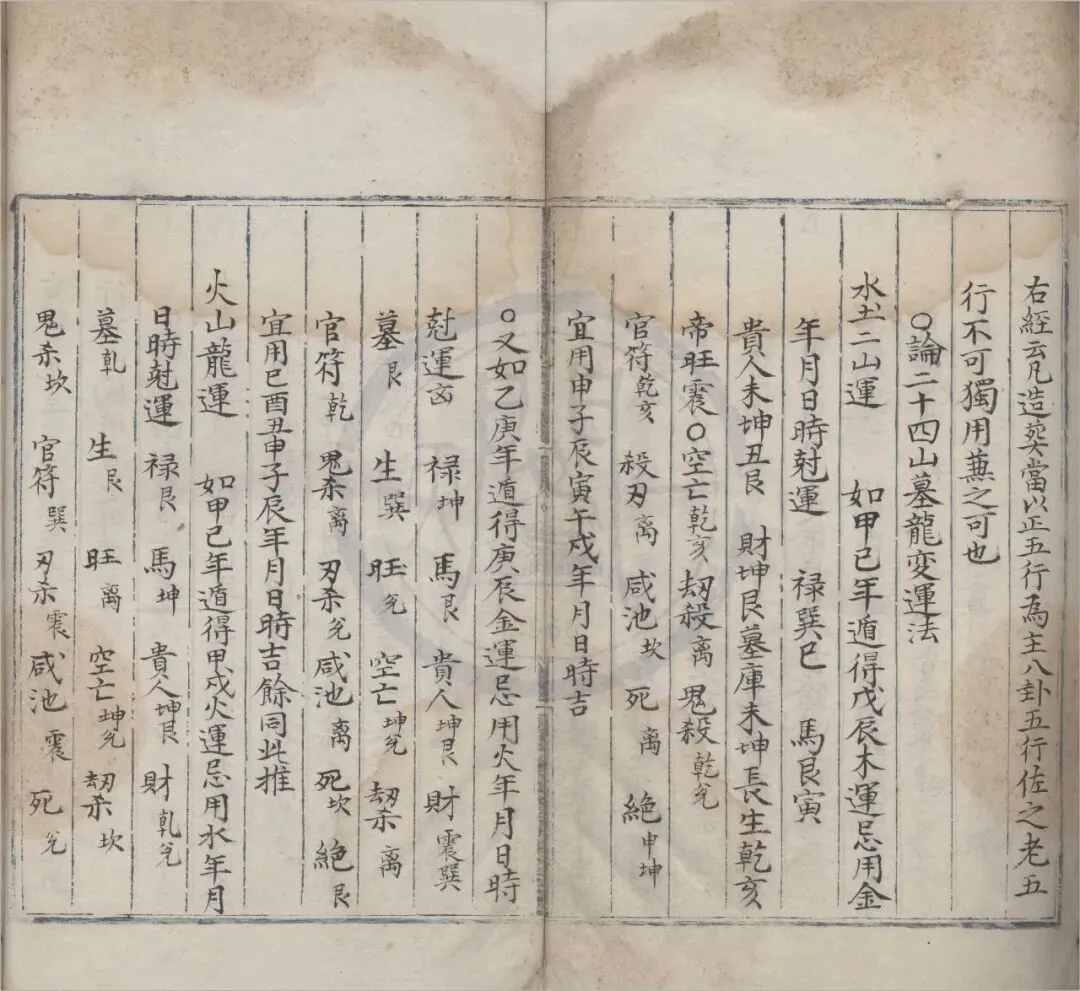 右經云凡造葬當以正五行為主八卦五行佐之老五
行不可獨用兼之可也
○論二十四山墓龍變運法
水土二山運 如甲己年遁得戊辰木運忌用金
年月日時尅運 禄巽巳 馬艮寅
貴人未坤丑艮 財坤艮墓庫未坤長生乾亥
帝旺震○空亡乾亥刼殺离鬼殺乾兑
官符乾亥 殺刃离 咸池坎 死离 絶申坤
宜用申子辰寅午戍年月日時吉
○又如乙庚年遁得庚辰金運忌用火年月日時
尅運凶 禄坤 馬艮 貴人坤艮 財震巽
墓艮 生巽 旺兑 空亡坤兑 刼杀离
官符乾 鬼杀离 刃杀兑咸池离 死坎 絶艮
宜用巳酉丑申子辰年月日時吉餘同此推
火山龍運 如甲己年遁得甲戍火運忌用水年月
日時尅運 禄艮 馬坤 貴人坤艮 財乹兑
墓乹 生艮 旺离 空亡坤兑 刼杀坎
鬼杀坎 官符巽 刃杀震 咸池震 死兑